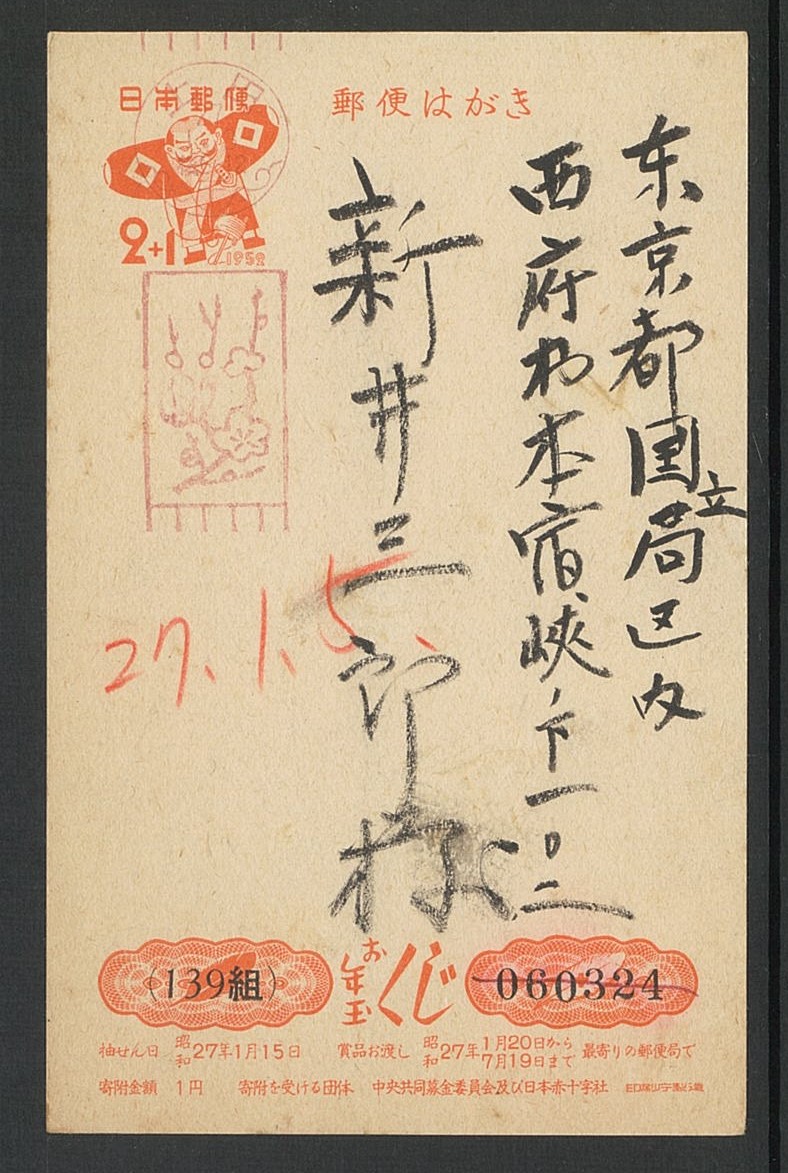 日本郵便
郵便はがき
2+1
1952
东京都国立局区内
西府村本宿峡ノ下一〇二
新井三郎様
27.1.5
(139組)
お年玉くじ
060324
抽せん日 昭和27年1月15日 賞品お渡し 昭和27年1月20日から7月19日まで 最寄りの郵便局で
寄附金額 1円 寄附を受ける団体 中央共同募金委員会及び日本赤十字社 印刷庁製造